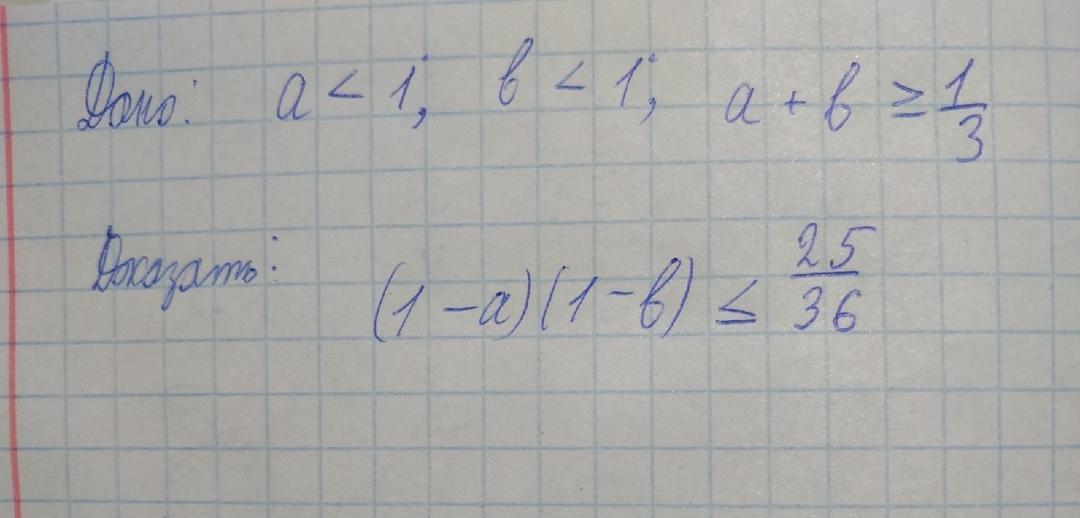 Дано: a < 1; b < 1; a + b ≥ 1/3
Доказать: (1 - a)(1 - b) ≤ 25/36